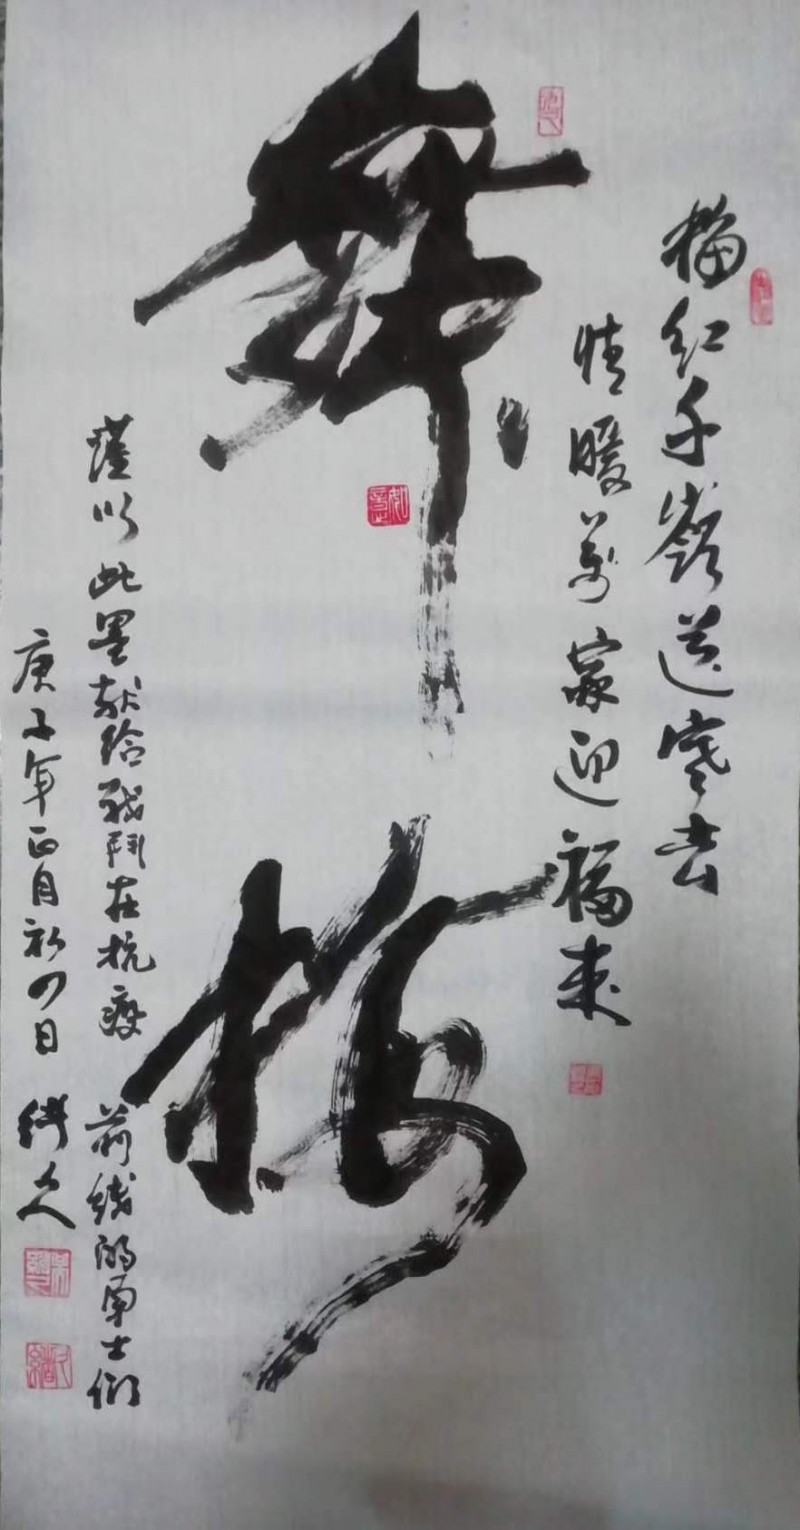 梅红千嶺送寒去
情暖萬家迎福来
舞梅
谨以此墨献给战鬥在抗疫前线的勇士们
庚子年正月初四日